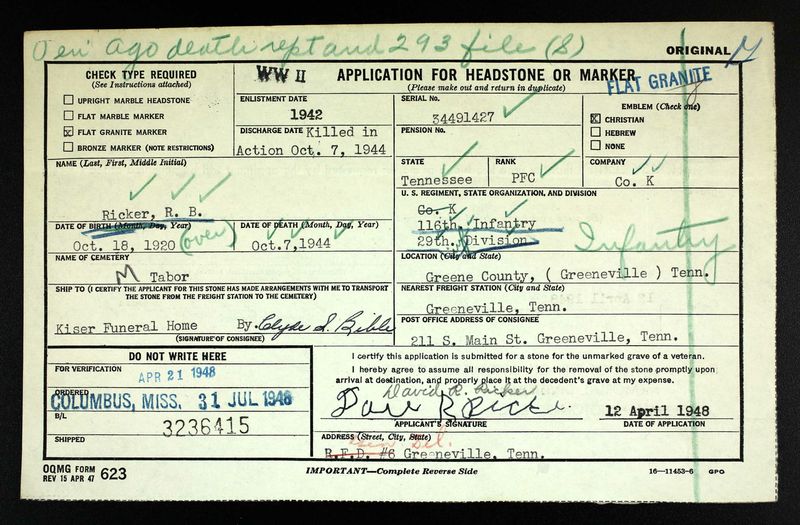 ago death rept and 293 file (8)
ORIGINAL
CHECK TYPE REQUIRED
(See Instructions attached)
UPRIGHT MARBLE HEADSTONE
FLAT MARBLE MARKER
☒ FLAT GRANITE MARKER
BRONZE MARKER (NOTE RESTRICTIONS)
WW II
APPLICATION FOR HEADSTONE OR MARKER
(Please make out and return in duplicate)
FLAT GRANITE
ENLISTMENT DATE
1942
DISCHARGE DATE Killed in
Action Oct. 7, 1944
SERIAL No.
34491427
PENSION No.
EMBLEM (Check one)
☒ CHRISTIAN
HEBREW
NONE
STATE
Tennessee
RANK
PFC
COMPANY
Co. K
NAME (Last, First, Middle Initial)
Ricker, R. B.
U. S. REGIMENT, STATE ORGANIZATION, AND DIVISION
Co. K
116th. Infantry
29th. Division
Infantry
DATE OF BIRTH (Month, Day, Year)
Oct. 18, 1920 (over)
DATE OF DEATH (Month, Day, Year)
Oct.7,1944
NAME OF CEMETERY
M Tabor
LOCATION (City and State)
Greene County, ( Greeneville ) Tenn.
SHIP TO (I CERTIFY THE APPLICANT FOR THIS STONE HAS MADE ARRANGEMENTS WITH ME TO TRANSPORT
THE STONE FROM THE FREIGHT STATION TO THE CEMETERY)
Kiser Funeral Home By. Clyde S. Bible
(SIGNATURE OF CONSIGNEE)
NEAREST FREIGHT STATION (City and State)
Greeneville, Tenn.
POST OFFICE ADDRESS OF CONSIGNEE
211 S. Main St. Greeneville, Tenn.
DO NOT WRITE HERE
FOR VERIFICATION
APR 21 1948
ORDERED
COLUMBUS, MISS. 31 JUL 1948
B/L
3236415
SHIPPED
I certify this application is submitted for a stone for the unmarked grave of a veteran.
I hereby agree to assume all responsibility for the removal of the stone promptly upon
arrival at destination, and properly place it at the decedent's grave at my expense.
David R. Ricker
12 April 1948
APPLICANT'S SIGNATURE
DATE OF APPLICATION
ADDRESS (Street, City, State)
Gen. Del.
R.F.D. #6 Greeneville, Tenn.
OQMG FORM
REV 15 APR 47 623
IMPORTANT—Complete Reverse Side
16—11453-6 GPO